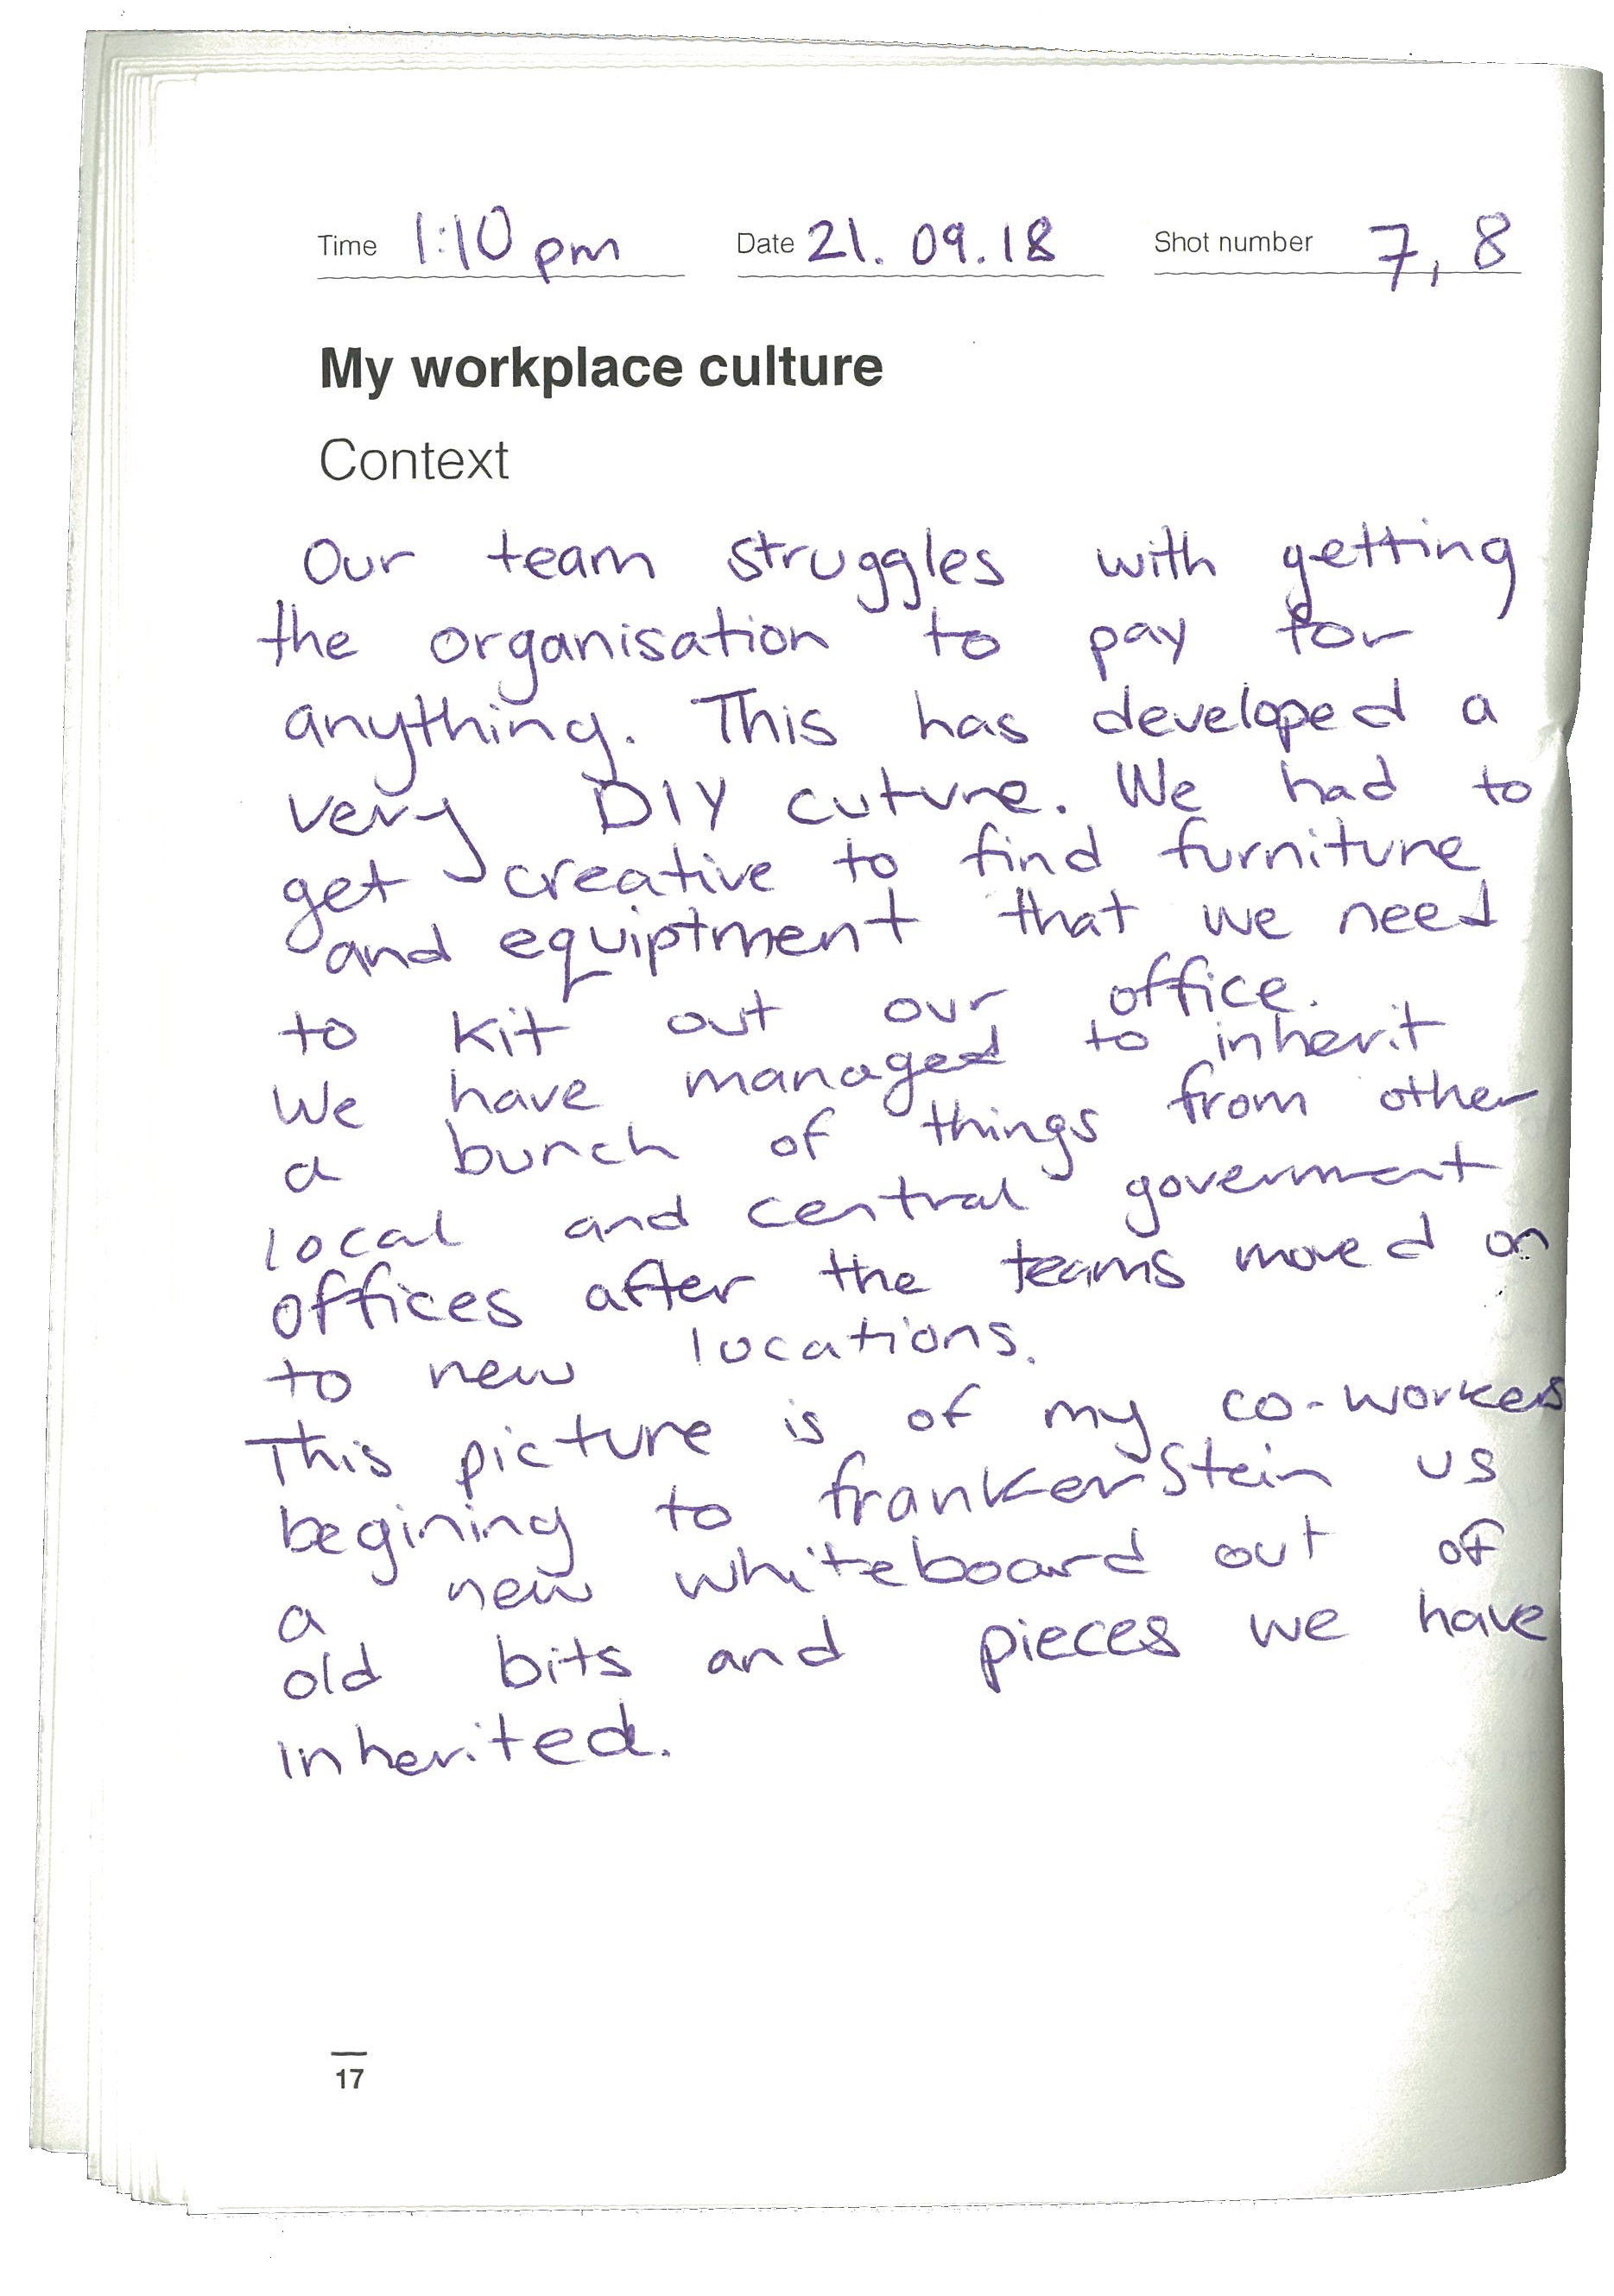 Time 1:10 pm Date 21.09.18 Shot number 7, 8
My workplace culture
Context
Our team struggles with getting
the organisation to pay for
anything. This has developed a
very DIY cuture. We had to
get creative to find furniture
and equiptment that we need
to kit out our office.
We have managed to inherit
a bunch of things from other
local and central government
offices after the teams moved on
to new locations.
This picture is of my co-workers
begining to frankenstein us
a new whiteboard out of
old bits and pieces we have
inherited.
17